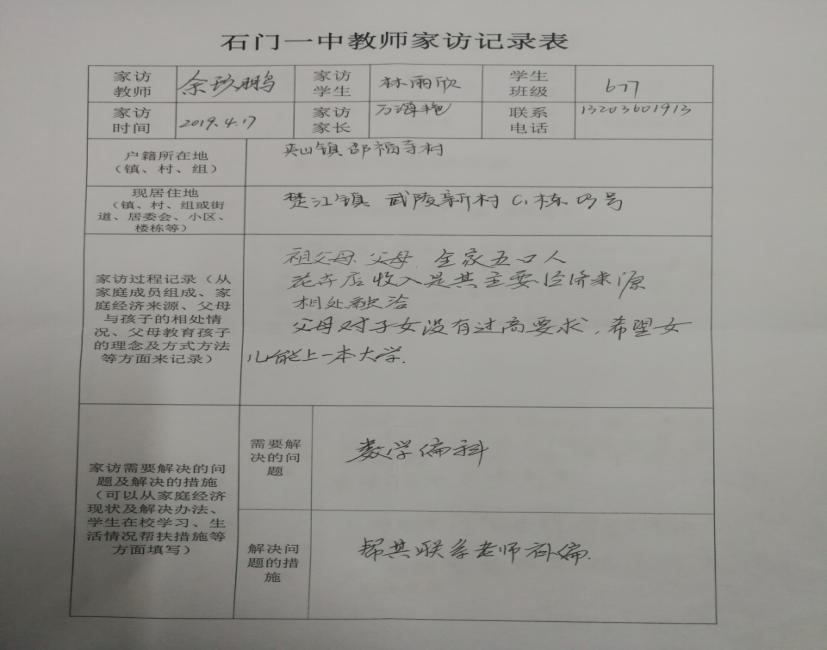 石门一中教师家访记录表
家访教师 余 鹏 家访学生 林雨欣 学生班级 677
家访时间 2019.4.17 家访家长 万 艳 联系电话 13203601913
户籍所在地
（镇、村、组）
夹山镇邵福寺村
现居住地
（镇、村、组或街
道、居委会、小区、
楼栋等）
楚江镇 武陵新村 C1栋 号
家访过程记录（从
家庭成员组成、家
庭经济来源、父母
与孩子的相处情
况、父母教育孩子
的理念及方式方法
等方面来记录）
祖父母 父母 全家五口人
花卉店收入是其主要经济来源
相处融洽
父母对子女没有过高要求，希望女
儿能上一本大学.
家访需要解决的问
题及解决的措施
（可以从家庭经济
现状及解决办法、
学生在校学习、生
活情况帮扶措施等
方面填写）
需要解
决的问
题
数学偏科
解决问
题的措
施
帮其联系老师补偏.